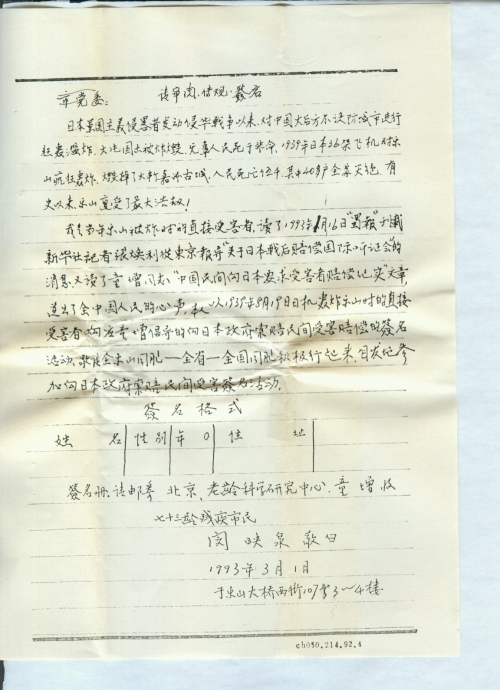 请审阅、传观、签名
日本军国主义侵害者发动侵华戰争以来,对中国大后方不设防城市进行
狂轰滥炸,大片国土被炸燬,无辜人民死于非命,1939年日本36架飞机对乐
山疯狂轰炸,燬掉了大半嘉州古城,人民死亡伍千,其中40多户全家灭绝,有
史以来,乐山重受了最大浩劫!
我是当年乐山被炸时的直接受害者,读了1993年1月16日"蜀报"刊載
新华社記者張焕利從東京報导"关于日本戰后賠偿国际听证会"的
消息,又读了童增同志"中国民间向日本要求受害者賠偿纪实"文章,
道出了全中国人民的心声,本人以1939年8月19日日机轰炸乐山时的直接
受害者,响应童增倡导的向日本政府索賠民间受害賠偿的簽名
活动,敬请全乐山同胞—全省—全国同胞积极行起来,自发地参
加向日本政府索賠民间受害簽名活动。
簽名格式
姓 名 性别 年 住 址
簽名册请邮寄 北京,老龄科学研究中心,童增收
七十三龄残疾市民
闵映泉敬白
1993年3月1日
于乐山大桥西街107号3~4楼
cb050.214.92.4